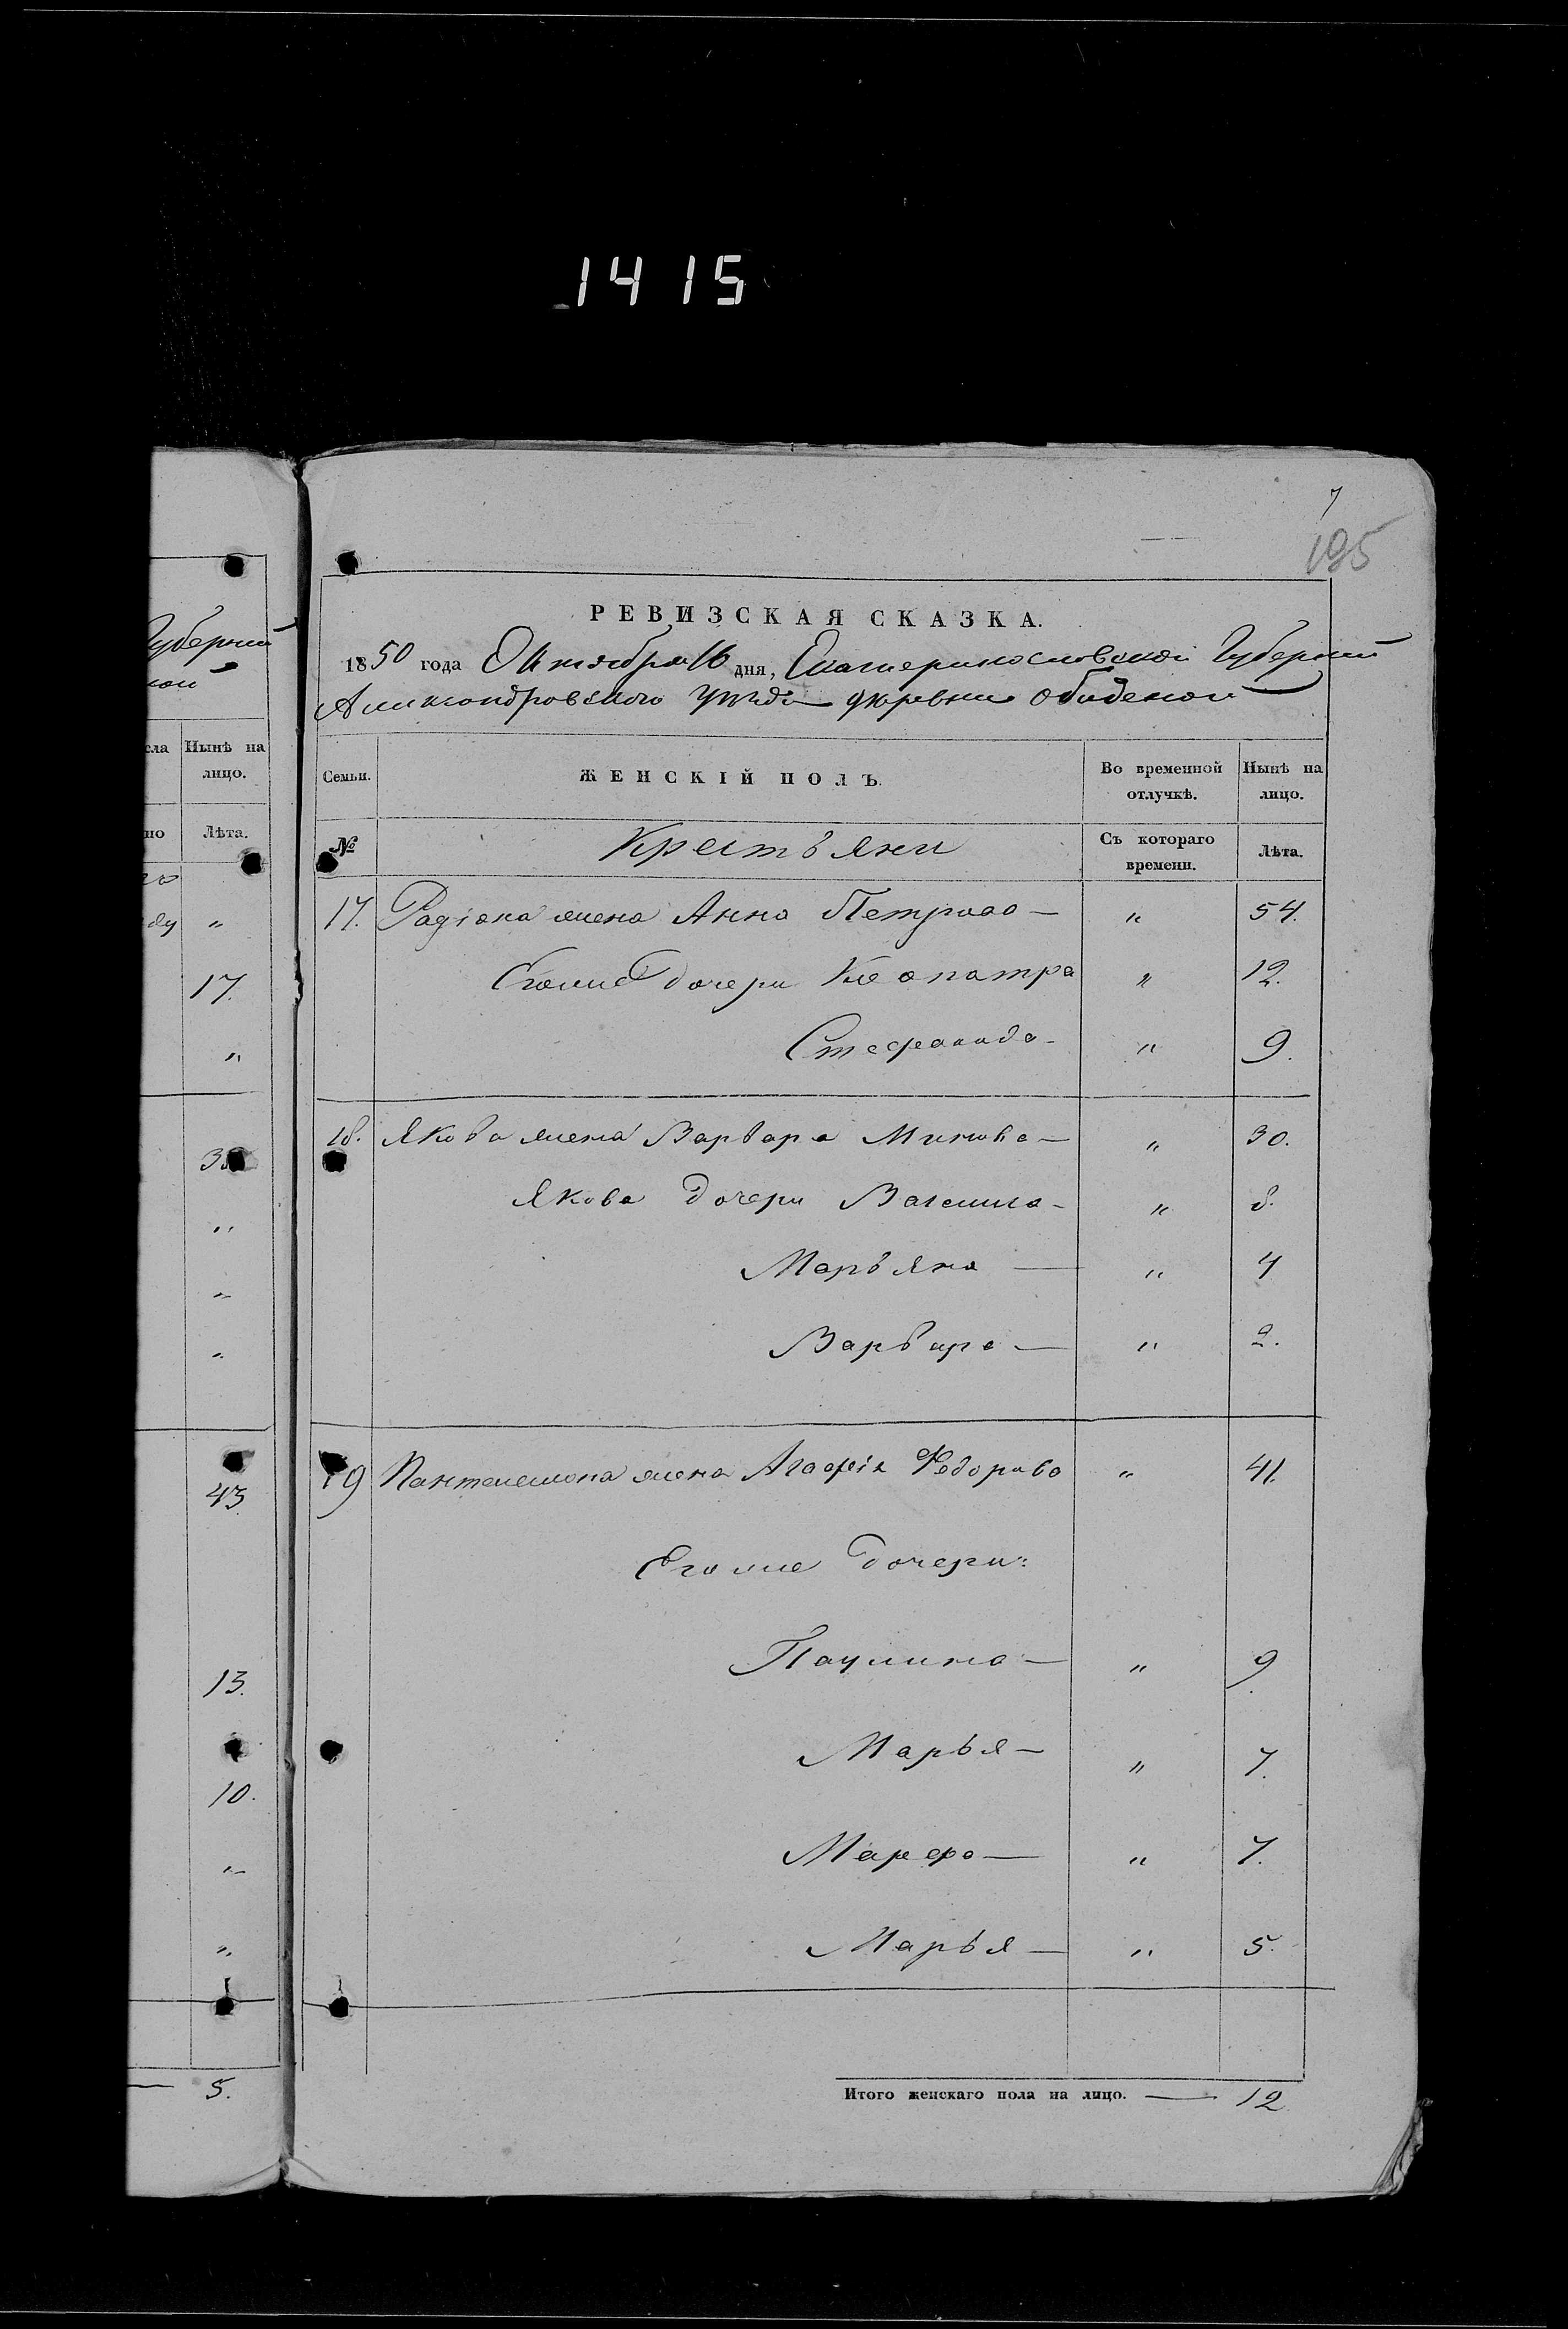 1415
7
195
Губерніи
РЕВИЗСКАЯ СКАЗКА.
1850 года Октября 16 дня, Екатеринославской Губерніи
Александровского уѣзда деревни
сла Нынѣ на
лицо.
Семьи. ЖЕНСКІЙ ПОЛЪ. Во временной Нынѣ на
отлучкѣ. лицо.
но Лѣта.
№ Крестьяни Съ котораго Лѣта.
времени.
ду "
17. Радіона жена Анна Петрова — " 54.
17. Егоже дочери Клеопатра " 12.
" Стефанида - " 9.
18. Якова жена Варвара Минова — " 30.
Якова дочери Васелиса - " 8.
" Марьяна — " 4
" Варвара — " 2.
43.
19 Пантелемона жена Агафія Федорова " 41.
Егоже дочери:
13. Паулина — " 9.
10. Марья — " 7.
" Марфа — " 7.
" Марья — " 5.
— 5.
Итого женскаго пола на лицо. — 12